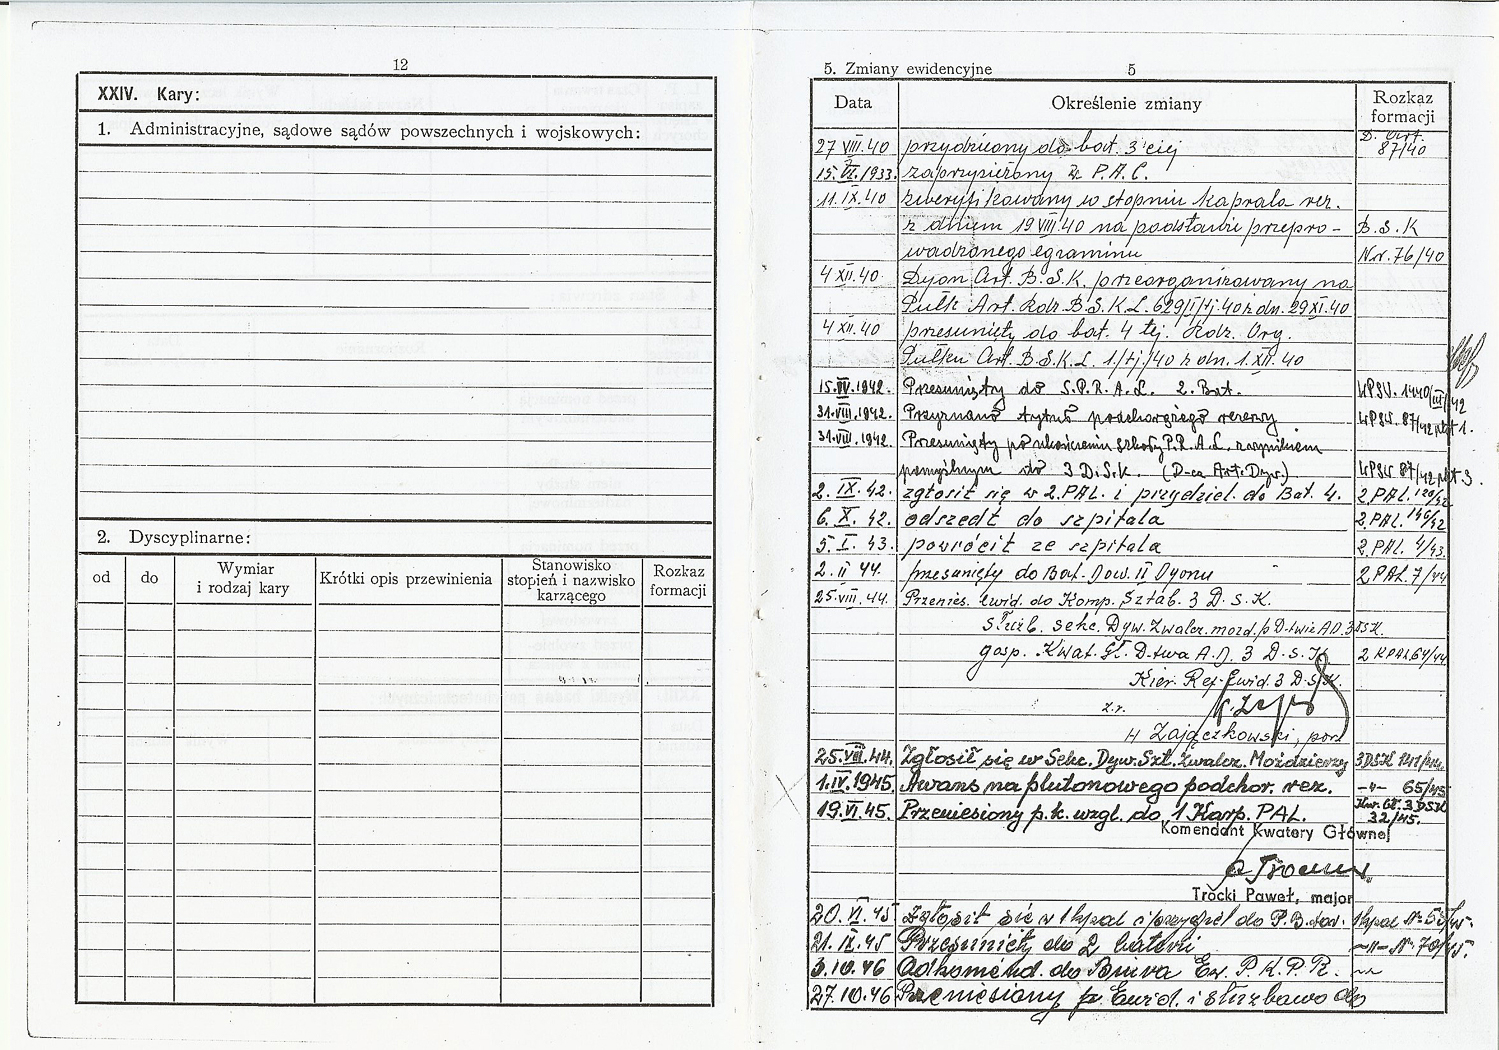 12
XXIV. Kary:
1. Administracyjne, sądowe sądów powszechnych i wojskowych:
2. Dyscyplinarne:
od
do
Wymiar
i rodzaj kary
Krótki opis przewinienia
Stanowisko
stopień i nazwisko
karzącego
Rozkaz
formacji
5. Zmiany ewidencyjne 5
Data Określenie zmiany Rozkaz
formacji
27 VIII.40 przydzielony do bat. 3 ciej D. Art. 87/40
15.VI.1933. zaprzysiężony w P.A.C.
11.IX.40 zweryfikowany w stopniu kaprala rez.
z dniem 19 VIII 40 na podstawie przepro- B.S.K
wadzonego egzaminu Nr. 76/40
4 XII.40. Dyon Art. B.S.K. przeorganizowany na
Pułk Art. Rozk. B.S.K.L. 629/I/tj.40 z dn. 29 XI.40
4 XII.40 przesunięty do bat. 4 tej. Rozk. Org.
Pułku Art. B.S.K.L. 1./tj./40 z dn. 1.XII.40
15.IV.1942. Przesunięty do S.P.R.A.L. 2. Bat. 1440/III/42
31.VIII.1942. Przyznano tytuł podchorążego rezerwy 87/42 pkt 1.
31.VIII.1942. Przesunięty po ukończeniu Szkoły P.R.A.L. z wynikiem
pomyślnym do 3 D.S.K. (D-ca Art. Dyw.) 87/42 pkt 3.
2. IX. 42. zgłosił się w 2.PAL. i przydziel. do Bat. 4. 2.PAL. 120/42
6. X. 42. odszedł do szpitala 2.PAL. 146/42
5. I. 43. powrócił ze szpitala 2.PAL. 4/43.
2. II 44. przesunięty do Bat. Dow. II Dyonu 2 PAL. 7/44
25.VIII.44. Przenies. Ewid. do Komp. Sztab. 3 D.S.K.
służb. sekc. Dyw. Zwalcz. mozd. p D-twie A.D. 3 DSK.
gosp. Kwat. Gł. D-twa A.D. 3 D.S.K. 2 KPAL 64/44
Kier. Ref. Ewid. 3 D.S.K.
z.r.
H Zajączkowski, por.
25.VIII.44. Zgłosił się w Sekc. Dyw. Szt. Zwalcz. Moździerzy 3DSK
1.IV.1945. Awans na plutonowego podchor. rez. -"- 65/45
19.VI.45. Przeniesiony p.k. wzgl. do 1 Karp. PAL. Kw. Gł. 3 DSK 32/45.
Komendant Kwatery Głównej
Trocki Paweł, major
20. VI. 45 Zgłosił się w 1 kpal i przydziel do P.B. 1 kpal Nr 53/45.
21. IX.45 Przesunięty do 2 baterii -"- Nr 70/45.
3.10.46 Odkomend. do Biura Ew. P.K.P.R.
27.10.46 Przeniesiony p. Ewid. i służbowo do